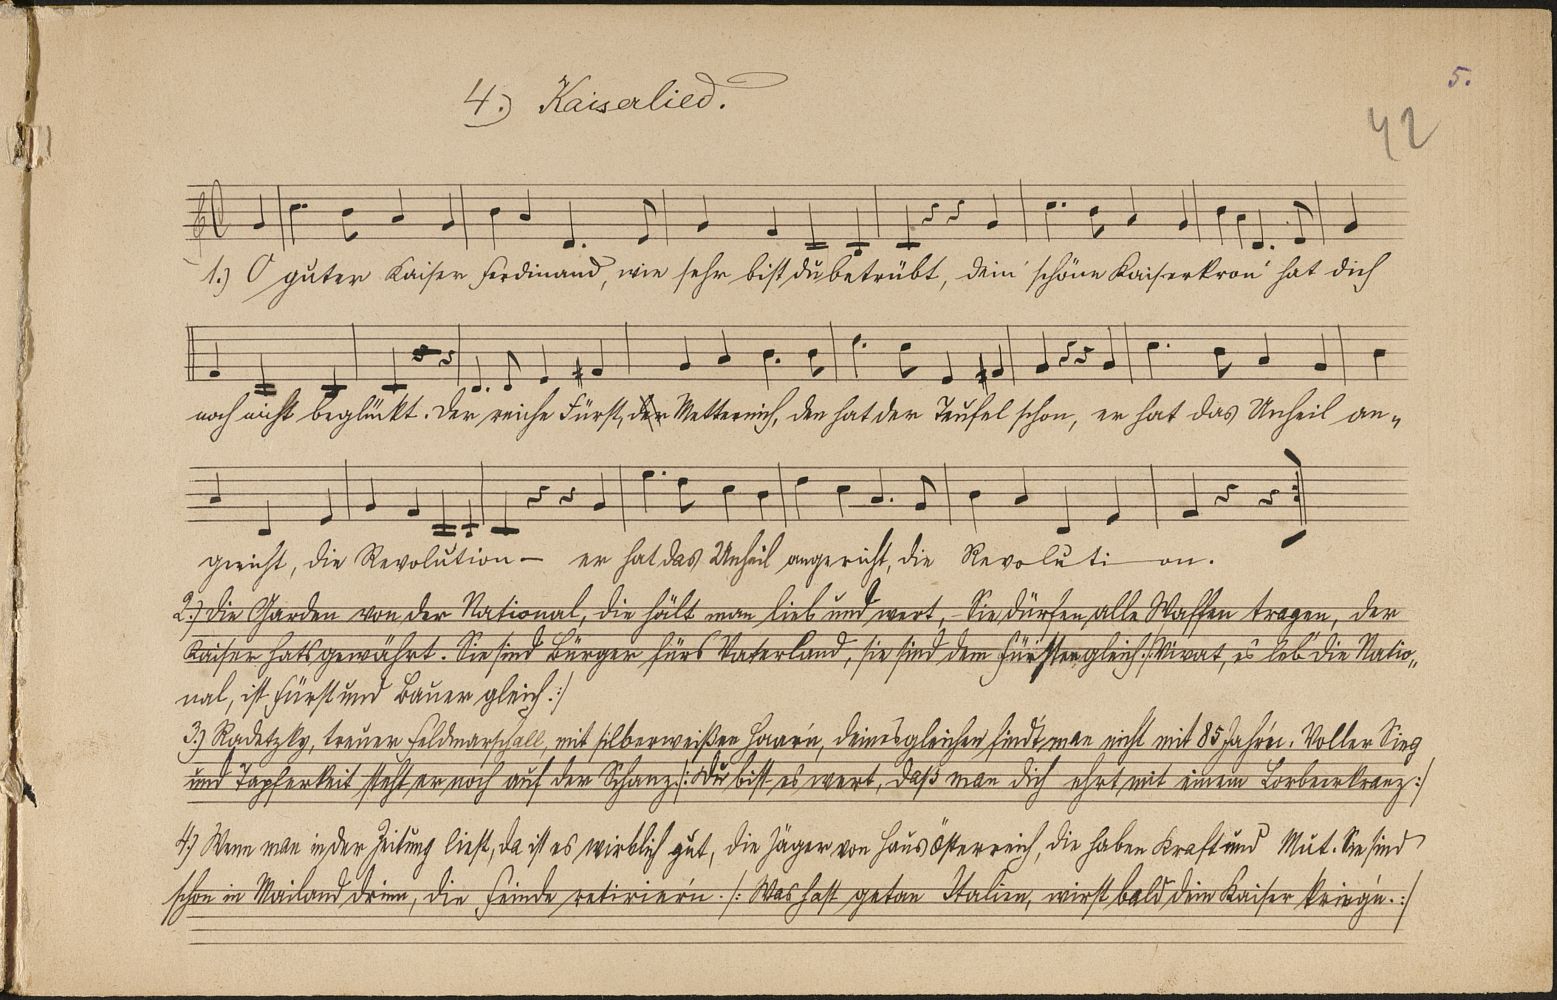 5.
4.) Kaiserlied.
42
1.) O guter Kaiser Ferdinand, wie sehr bist du betrübt, dein' schöne Kaiserkron' hat dich
noch nicht beglückt. Der reiche Fürst, der Metternich, den hat der Teufel schon, er hat das Unheil an-
gericht, die Revolution – er hat das Unheil angericht, die Revoluti – on.
2.) Die Garden von der National, die hält man lieb und wert, Sie dürfen alle Waffen tragen, der
Kaiser hats gewährt. Sie sind Bürger fürs Vaterland, sie sind dem Fürsten gleich. /: Vivat, es leb' die Natio-
nal, ist Fürst und Bauer gleich. :/
3.) Radetzky, treuer Feldmarschall, mit silberweißen Haar'n, deinesgleichen find't man nicht mit 85 Jahr'n. Voller Sieg
und Tapferkeit steht er noch auf der Schanz /: Du bist es wert, daß man dich ehrt mit einem Lorbeerkranz :/
4.) Wenn man in der Zeitung liest, da ist es wirklich gut, die Jäger von Haus Österreich, die haben Kraft und Mut. Sie sind
schon in Mailand drinn, die Feinde retirier'n. /: Was hast getan Italien, wirst bald dein Kaiser krieg'n. :/